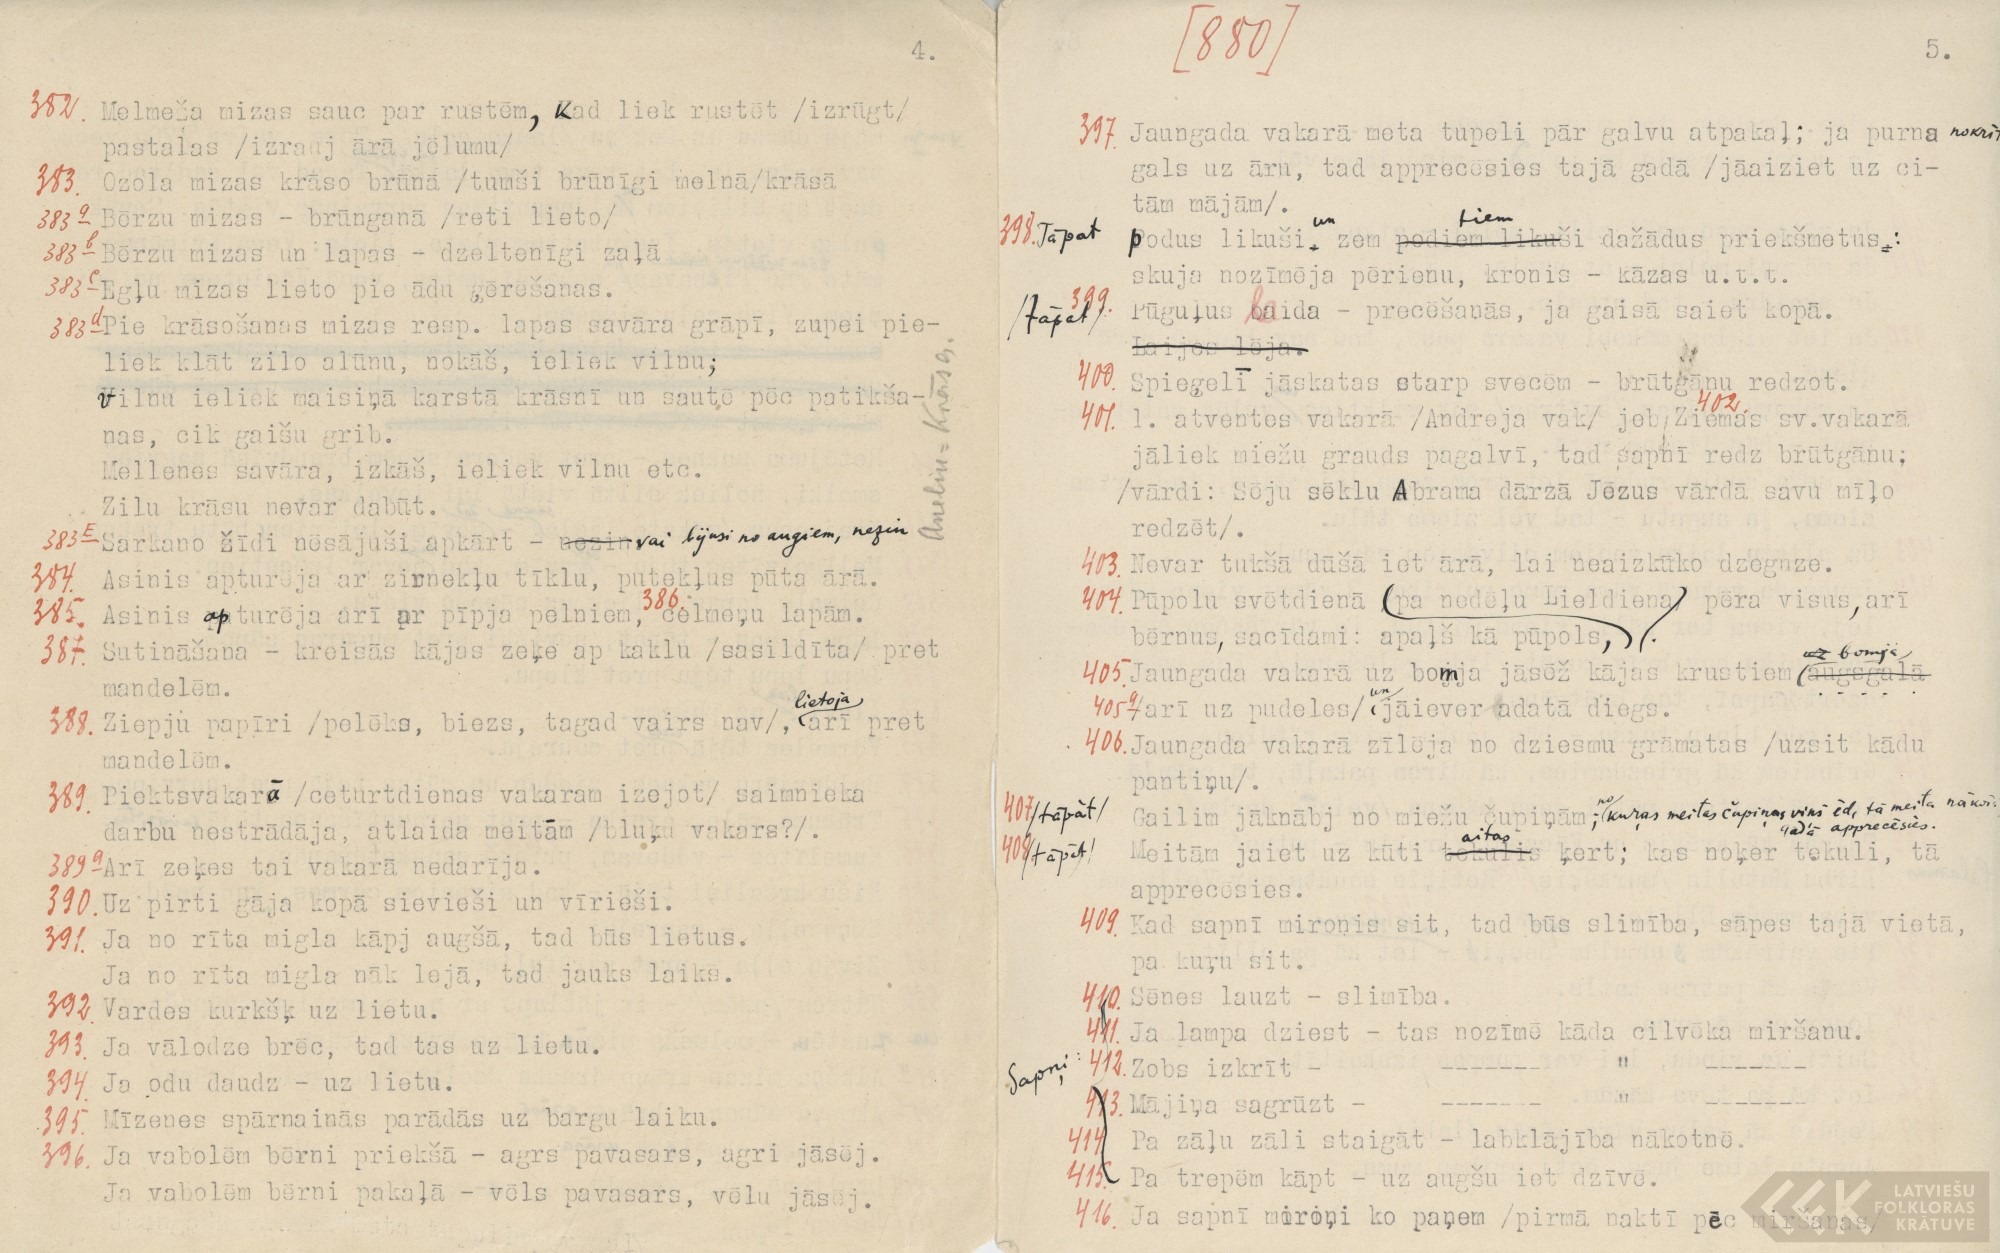 4.
382. Melmeža mizas sauc par rustēm, Kad liek rustēt /izrūgt/
pastalas /izrauj ārā jēlumu/
383. Ozola mizas krāso brūnā /tumši brūnīgi melnā/krāsā
383a Bērzu mizas - brūnganā /reti lieto/
383b Bērzu mizas un lapas - dzeltenīgi zaļā
383c Egļu mizas lieto pie ādu ģērēšanas.
383d Pie krāsošanas mizas resp. lapas savāra grāpī, zupei pie-
liek klāt zilo alūnu, nokāš, ieliek vilnu;
Vilnu ieliek maisiņā karstā krāsnī un sautē pēc patikša-
nas, cik gaišu grib.
Mellenes savāra, izkāš, ieliek vilnu etc.
Zilu krāsu nevar dabūt.
383E Sarkano žīdi nēsājuši apkārt - nezin vai bijusi no augiem, nezin
384. Asinis apturēja ar zirnekļu tīklu, putekļus pūta ārā.
385. Asinis apturēja arī ar pīpja pelniem, 386. celmeņu lapām.
387. Sutināšana - kreisās kājas zeķe ap kaklu /sasildīta/ pret
mandelēm.
lietoja
388. Ziepju papīri /pelēks, biezs, tagad vairs nav/, arī pret
mandelēm.
389. Piektsvakarā /ceturtdienas vakaram izejot/ saimnieka
darbu nestrādāja, atlaida meitām /bluķu vakars?/.
389a Arī zeķes tai vakarā nedarīja.
390. Uz pirti gāja kopā sievieši un vīrieši.
391. Ja no rīta migla kāpj augšā, tad būs lietus.
Ja no rīta migla nāk lejā, tad jauks laiks.
392. Vardes kurkšķ uz lietu.
393. Ja vālodze brēc, tad tas uz lietu.
394. Ja odu daudz - uz lietu.
395. Mīzenes spārnainās parādās uz bargu laiku.
396. Ja vabolēm bērni priekšā - agrs pavasars, agri jāsēj.
Ja vabolēm bērni pakaļā - vēls pavasars, vēlu jāsēj.
[880]
5.
397. Jaungada vakarā meta tupeli pār galvu atpakaļ; ja purna nokrīt
gals uz āru, tad apprecēsies tajā gadā /jāaiziet uz ci-
tām mājām/.
un tiem
398. Tāpat podus likuši zem podiem likuši dažādus priekšmetus:
skuja nozīmēja pērienu, kronis - kāzas u.t.t.
/tāpat/ 399. Pūguļus baida - precēšanās, ja gaisā saiet kopā.
Laijos lēja.
400. Spiegelī jāskatas starp svecēm - brūtgānu redzot.
401. 1. atventes vakarā /Andreja vak/ jeb 402 Ziemas sv.vakarā
jāliek miežu grauds pagalvī, tad sapnī redz brūtgānu;
/vārdi: Sēju sēklu Abrama dārzā Jēzus vārdā savu mīļo
redzēt/.
403. Nevar tukšā dūšā iet ārā, lai neaizkūko dzeguze.
404. Pūpolu svētdienā (pa nedēļu Lieldiena) pēra visus, arī
bērnus, sacīdami: apaļš kā pūpols,
uz bomja
405. Jaungada vakarā uz bomja jāsēž kājas krustiem augsgalā
405a /arī uz pudeles/ un jāiever adatā diegs.
406. Jaungada vakarā zīlēja no dziesmu grāmatas /uzsit kādu
pantiņu/.
407 /tāpāt/ Gailim jāknābj no miežu čupiņām; no kuŗas meitas čupiņas viņš ēd, tā meita nākoš.
gadā apprecēsies.
aitas
408 /tāpāt/ Meitām jaiet uz kūti tekulis ķert; kas noķer tekuli, tā
apprecēsies.
409. Kad sapnī mironis sit, tad būs slimība, sāpes tajā vietā,
pa kuŗu sit.
410. Sēnes lauzt - slimība.
411. Ja lampa dziest - tas nozīmē kāda cilvēka miršanu.
Sapņi: 412. Zobs izkrīt - ------- " -------
413. Mājiņa sagrūzt - ------- " -------
414 Pa zāļu zāli staigāt - labklājība nākotnē.
415. Pa trepēm kāpt - uz augšu iet dzīvē.
416. Ja sapnī miroņi ko paņem /pirmā naktī pēc miršanas/
Aneliņ = Krāsa.
LATVIEŠU
FOLKLORAS
KRĀTUVE